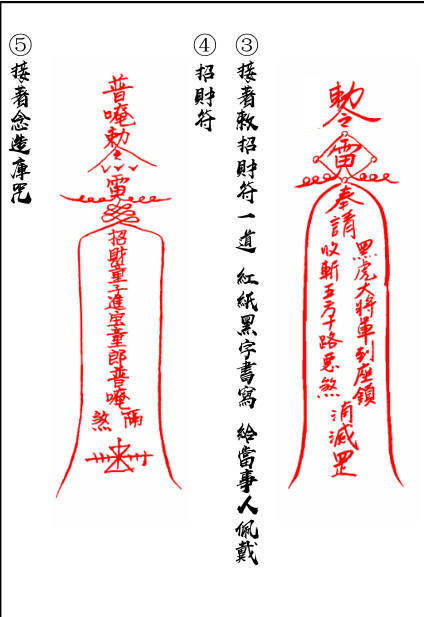 勅令
雷
奉請
黑虎大將軍到座
收斬五方十路惡煞
消滅
罡
③接著敕招財符一道 紅紙黑字書寫 給當事人佩戴
④招財符
普唵勅令
雷
招財童子進宝童郎普唵
隔
煞
⑤接著念造庫咒